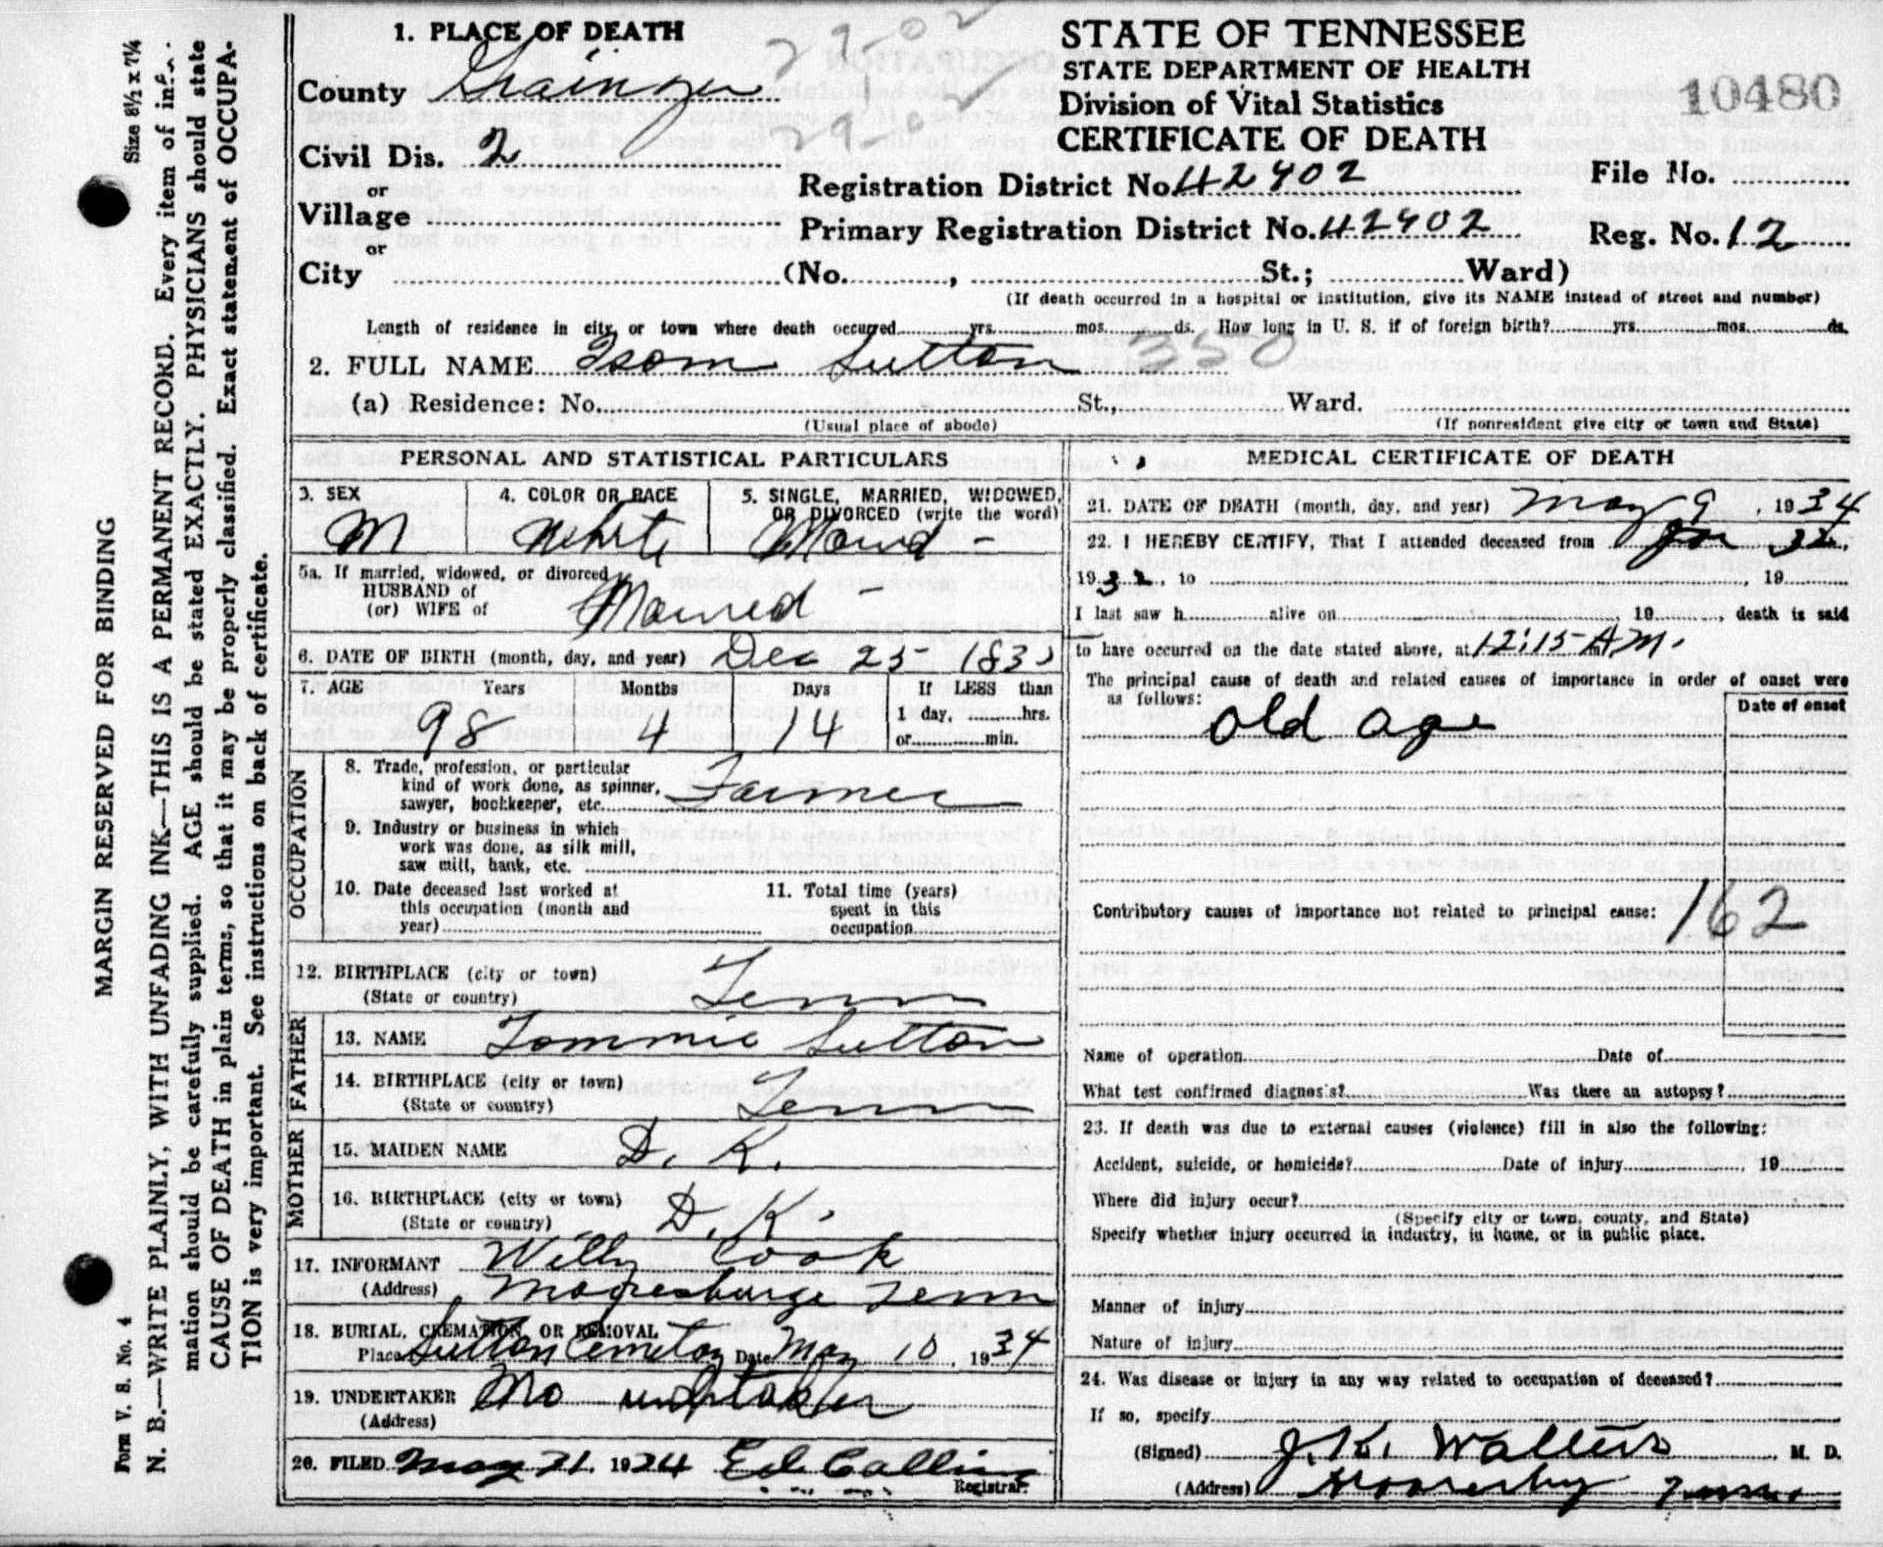 Size 8½ x 7¼
MARGIN RESERVED FOR BINDING
N. B.—WRITE PLAINLY, WITH UNFADING INK—THIS IS A PERMANENT RECORD. Every item of
mation should be carefully supplied. AGE should be stated EXACTLY. PHYSICIANS should state
CAUSE OF DEATH in plain terms, so that it may be properly classified. Exact statement of OCCUPA-
TION is very important. See instructions on back of certificate.
Form V. S. No. 4
1. PLACE OF DEATH
County Grainger
Civil Dis. 2
or
Village
or
City (No. , St.; Ward)
STATE OF TENNESSEE
STATE DEPARTMENT OF HEALTH
Division of Vital Statistics
CERTIFICATE OF DEATH
10480
Registration District No. 42402 File No.
Primary Registration District No. 42402 Reg. No. 12
(If death occurred in a hospital or institution, give its NAME instead of street and number)
Length of residence in city, or town where death occurred yrs. mos. ds. How long in U. S. if of foreign birth? yrs. mos. ds.
2. FULL NAME Isom Sutton 350
(a) Residence: No. St., Ward.
(Usual place of abode) (If nonresident give city or town and State)
PERSONAL AND STATISTICAL PARTICULARS
3. SEX
M
4. COLOR OR RACE
White
5. SINGLE, MARRIED, WIDOWED,
OR DIVORCED (write the word)
5a. If married, widowed, or divorced
HUSBAND of
(or) WIFE of
6. DATE OF BIRTH (month, day, and year) Dec 25 183
7. AGE Years Months Days If LESS than
98 4 14 1 day, hrs.
or min.
OCCUPATION
8. Trade, profession, or particular
kind of work done, as spinner,
sawyer, bookkeeper, etc. Farmer
9. Industry or business in which
work was done, as silk mill,
saw mill, bank, etc.
10. Date deceased last worked at
this occupation (month and
year)
11. Total time (years)
spent in this
occupation
12. BIRTHPLACE (city or town)
(State or country) Tenn
FATHER
13. NAME Tommie Sutton
14. BIRTHPLACE (city or town)
(State or country) Tenn
MOTHER
15. MAIDEN NAME D. K.
16. BIRTHPLACE (city or town)
(State or country) D. K.
17. INFORMANT Willy Cook
(Address) Mooresburge Tenn
18. BURIAL, CREMATION OR REMOVAL
Place Sutton Cemetay Date May 10, 1934
19. UNDERTAKER No undrtaker
(Address)
20. FILED May 21, 1934 Ed Collins
Registrar.
MEDICAL CERTIFICATE OF DEATH
21. DATE OF DEATH (month, day, and year) May 9, 1934
22. I HEREBY CERTIFY, That I attended deceased from
1932, to , 19
I last saw h alive on 19 , death is said
to have occurred on the date stated above, at 12:15 A.M.
The principal cause of death and related causes of importance in order of onset were
as follows: Date of onset
old age
Contributory causes of importance not related to principal cause: 162
Name of operation Date of
What test confirmed diagnosis? Was there an autopsy?
23. If death was due to external causes (violence) fill in also the following:
Accident, suicide, or homicide? Date of injury , 19
Where did injury occur?
(Specify city or town, county, and State)
Specify whether injury occurred in industry, in home, or in public place.
Manner of injury
Nature of injury
24. Was disease or injury in any way related to occupation of deceased?
If so, specify
(Signed) J. K. Walters, M. D.
(Address)